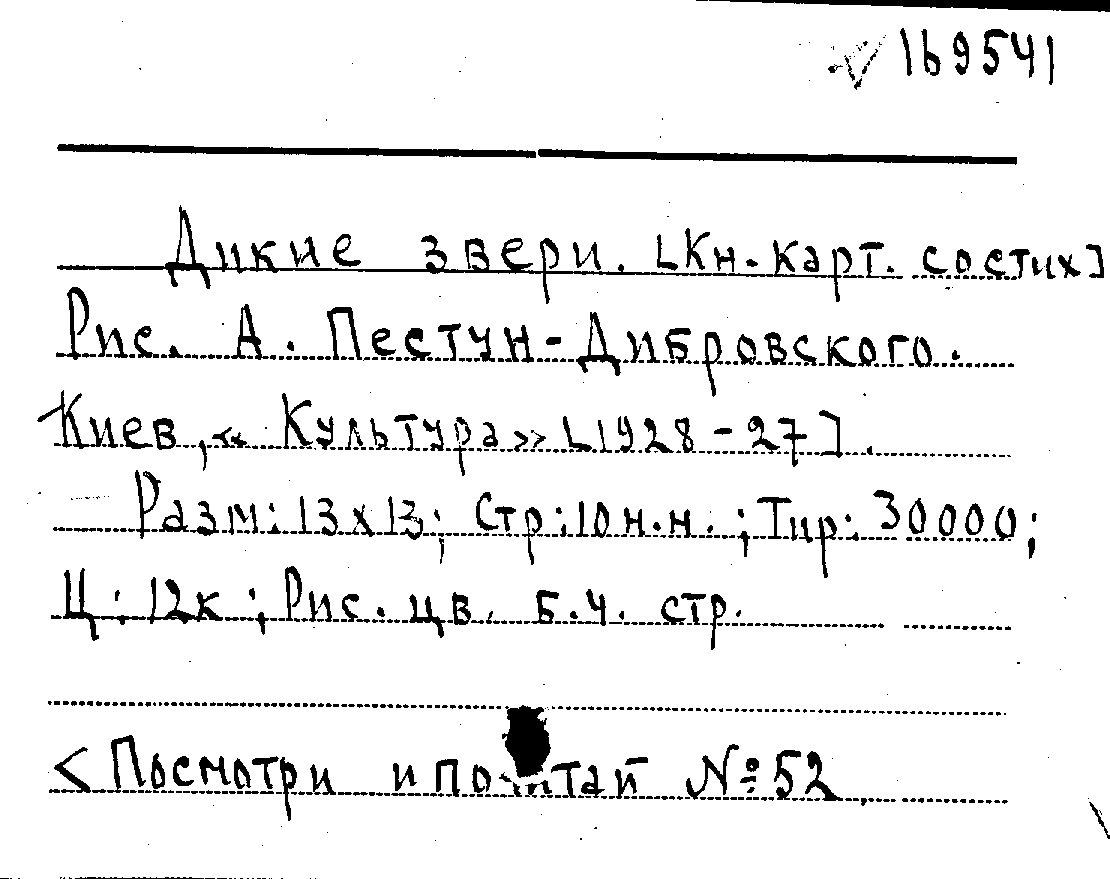 169541
Дикие звери. [Кн-карт. со стих]
Рис. А. Пестун-Дибровского.
Киев, «Культура» [1928-27].
Разм: 13х13; Стр: 10 н.н.; Тир: 30000;
Ц: 12к; Рис. цв. б.ч. стр.
<Посмотри и почитай №52